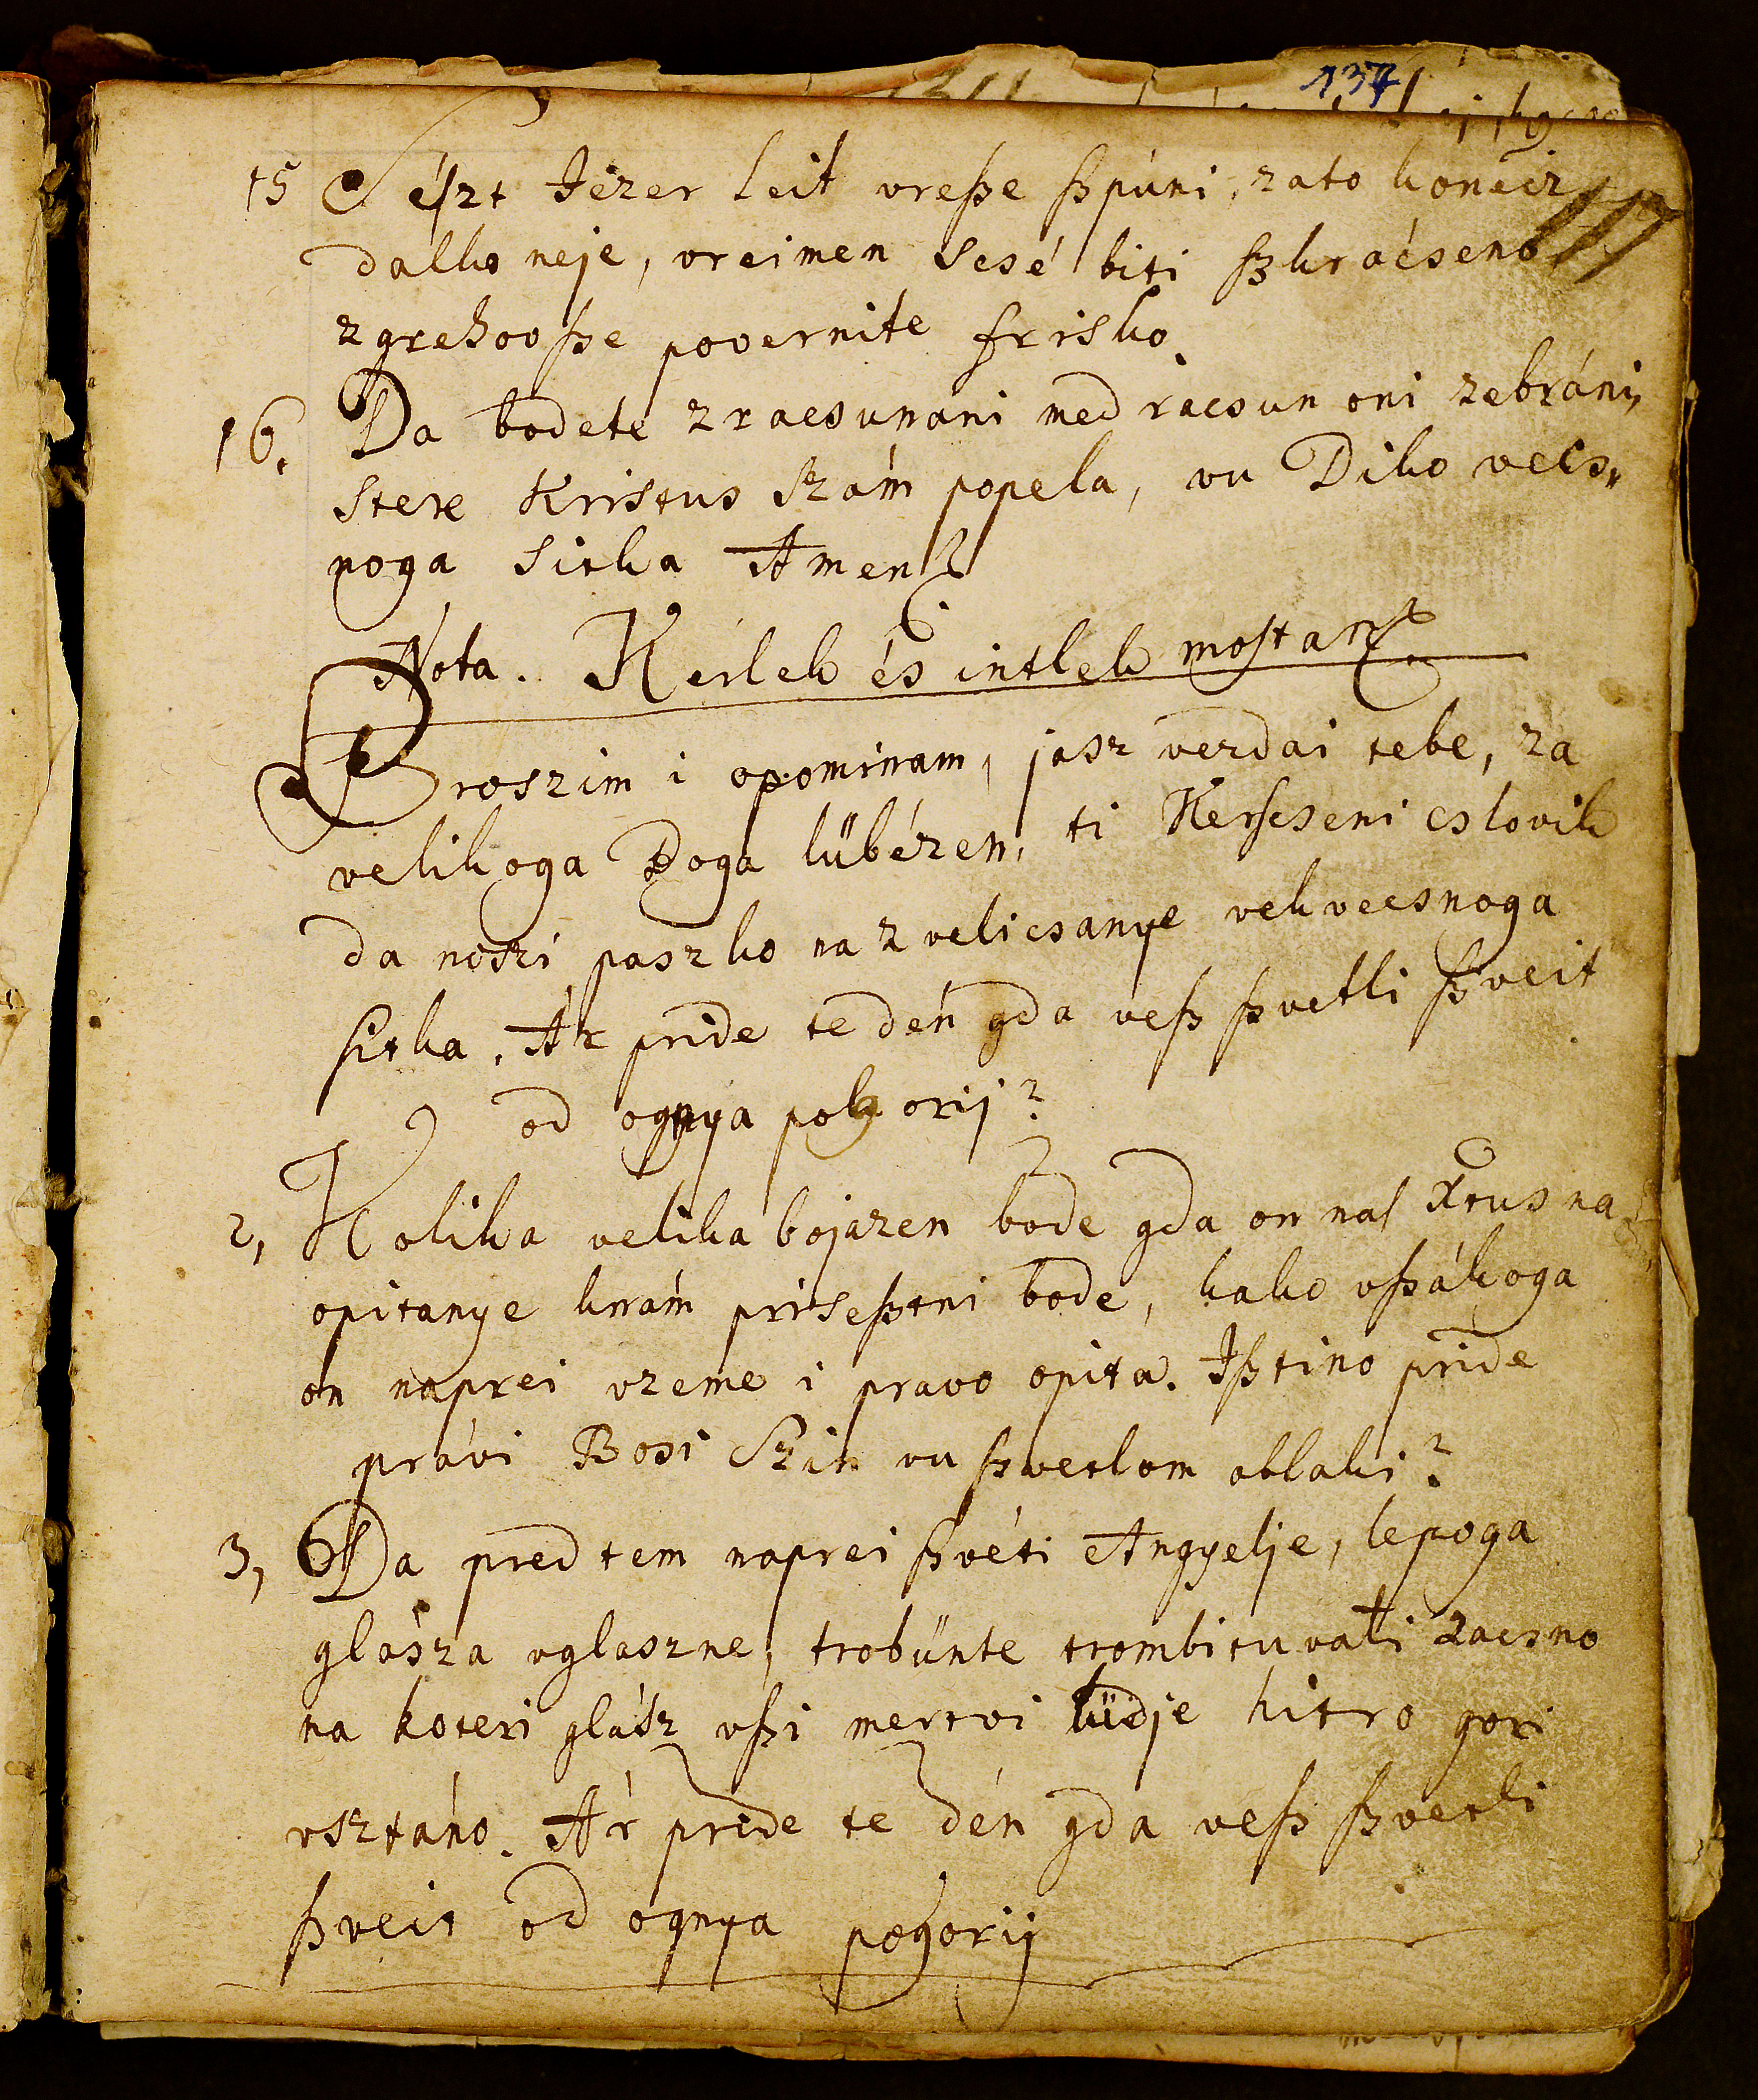 137
15 Sészt Jézer leit vreſze ſzpúni, zato konéiz
117
dalko neje, vreimen scsé biti ſzkrácseno
zgrehov ſze povernite frisko.
16. Da bodete zracsunani med racsun oni zebráni,
stere Kristus szám popela, vu Diko vecs„
noga sitka Amen
Nota. Kérlek és intlek mostan
Proszim i opominam, jasz verdai tebe, za
velikoga Boga lübézen, ti Kerscseni cslovik
da noszi paszko na zvelicsanye vekvecsnoga
sitka. Ár pride te dén gda veſz ſzvetli ſzveit
od ognya pogorij?
2, Kolika velika bojazen bode gda on nas Xtus na
opitanye knám priseſztni bode, kako vſzákoga
on naprei vzeme i pravo opita. Iſztino pride
právi Bosi Szin vu ſzvetlom oblaki?
3, Da pred tem naprei ſzvéti Angyelje, lepoga
glásza vglaszne, trobünte trombituvati zacsno
na koteri glász vſzi mertvi lüdje hitro gori
vsztáno. Ár pride te dén gda veſz ſzvetli
ſzveit od ognya pogorij